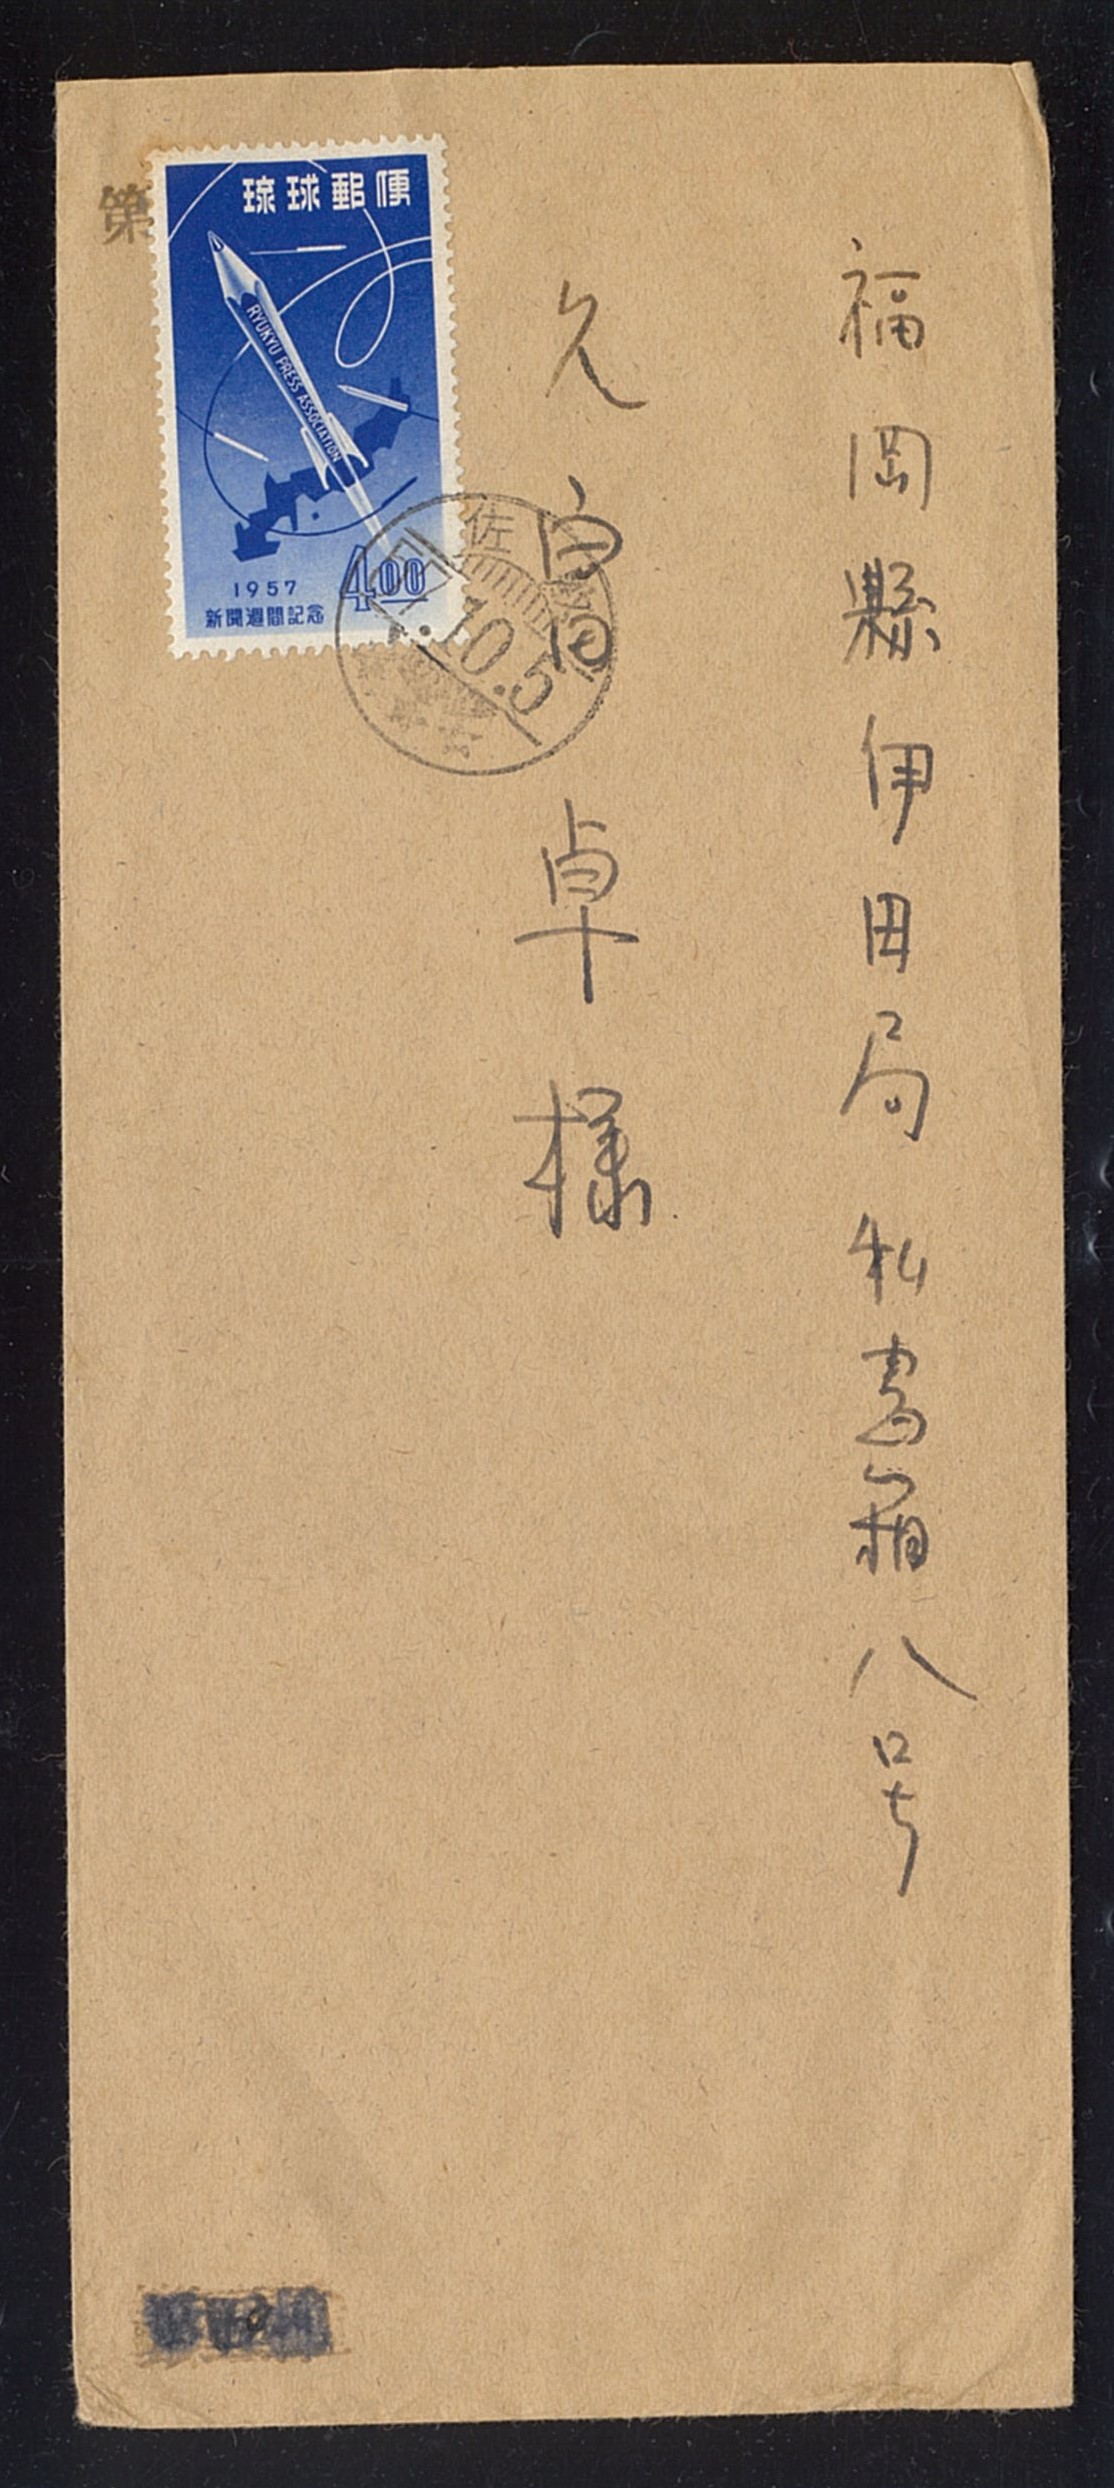 福岡縣伊田局私書箱八号
久白田卓様
第
琉球郵便
RYUKYU PRESS ASSOCIATION
4.00
1957
新聞週間記念
佐
10.5